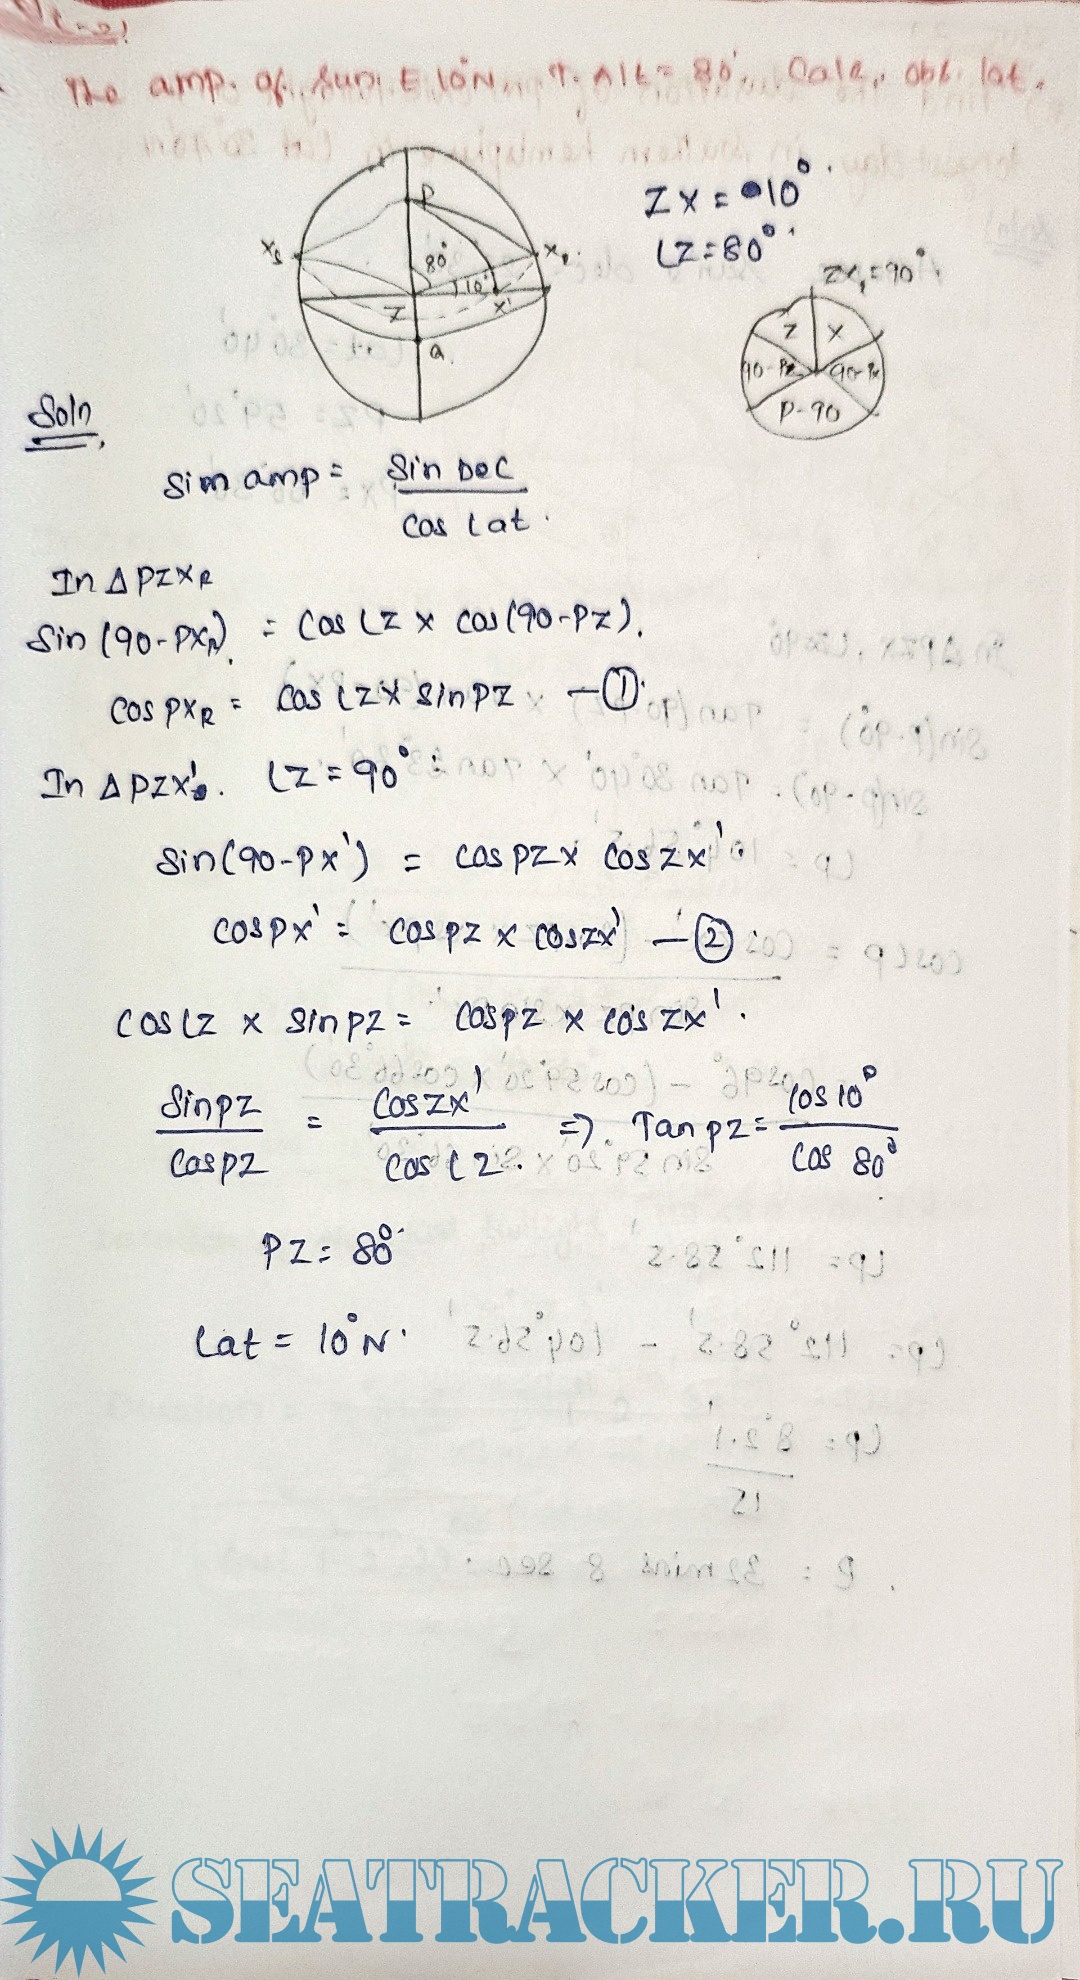 The amp. of sun E 10°N, T. Alt = 80°. Calc. obs. lat.
P
X_S
X_R
80°
10°
Z
X'
Q
ZX = 10°
∠Z = 80°
ZX₁ = 90°
Z
X
90-PZ
90-PX
P-90
Soln
Sin amp = Sin Dec / Cos Lat.
In Δ PZX_R
Sin (90-PX_R) = Cos ∠Z x Cos (90-PZ).
Cos PX_R = Cos ∠Z x Sin PZ — ①
In Δ PZX'. ∠Z = 90°
Sin (90-PX') = Cos PZ x Cos ZX'
Cos PX' = Cos PZ x Cos ZX' — ②
Cos ∠Z x Sin PZ = Cos PZ x Cos ZX'.
Sin PZ / Cos PZ = Cos ZX' / Cos ∠Z. => Tan PZ = Cos 10° / Cos 80°
PZ = 80°
Lat = 10°N.
SEATRACKER.RU